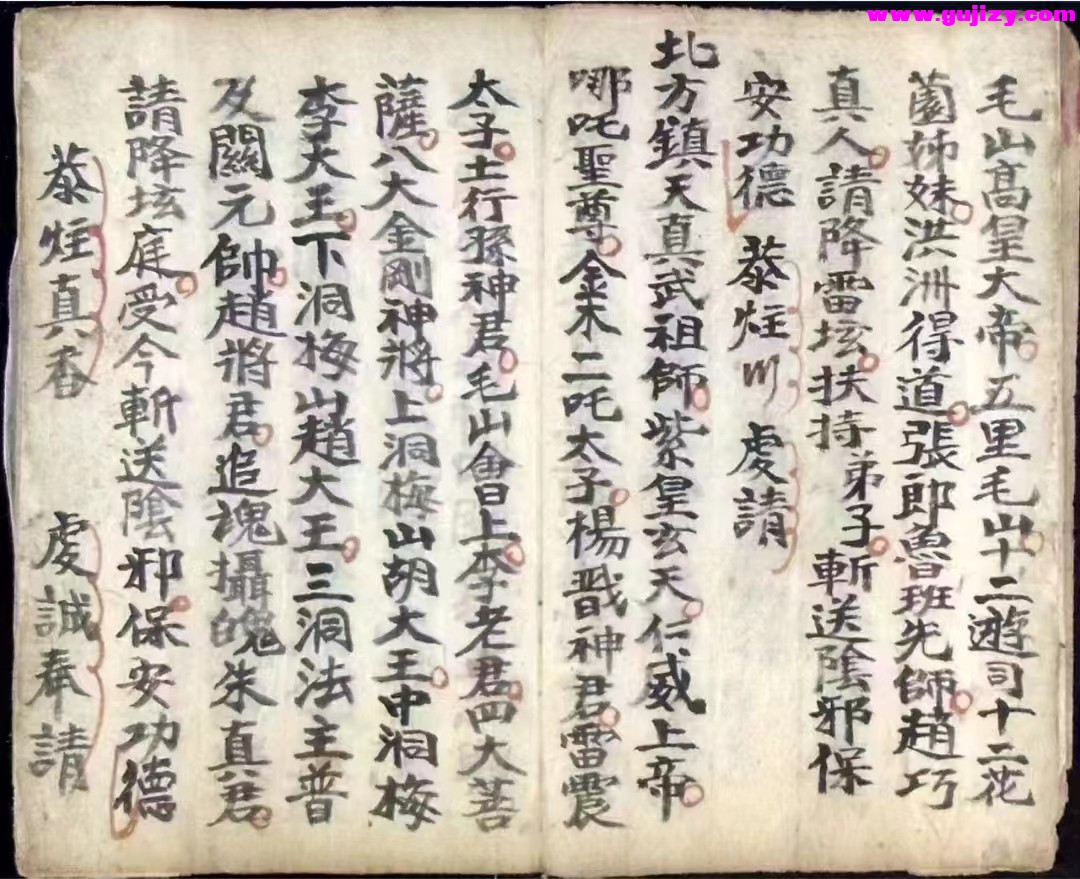 www.gujizy.com
毛山髙皇大帝五里毛山十二遊司十二花
園姊妹洪洲得道張郎魯班先師趙巧
真人請降雷坛扶持弟子斬送陰邪保
安功德 恭炷川 虔請
北方鎮天真武祖師紫皇玄天仁威上帝
哪吒聖尊金木二吒太子楊戩神君雷震
太子土行孫神君毛山會上李老君四大菩
薩八大金剛神將上洞梅山胡大王中洞梅
李大王下洞梅山趙大王三洞法主普
及關元帥趙將君追魂攝魄朱真君
請降坛庭受今斬送陰邪保安功德
恭炷真香 虔誠奉請